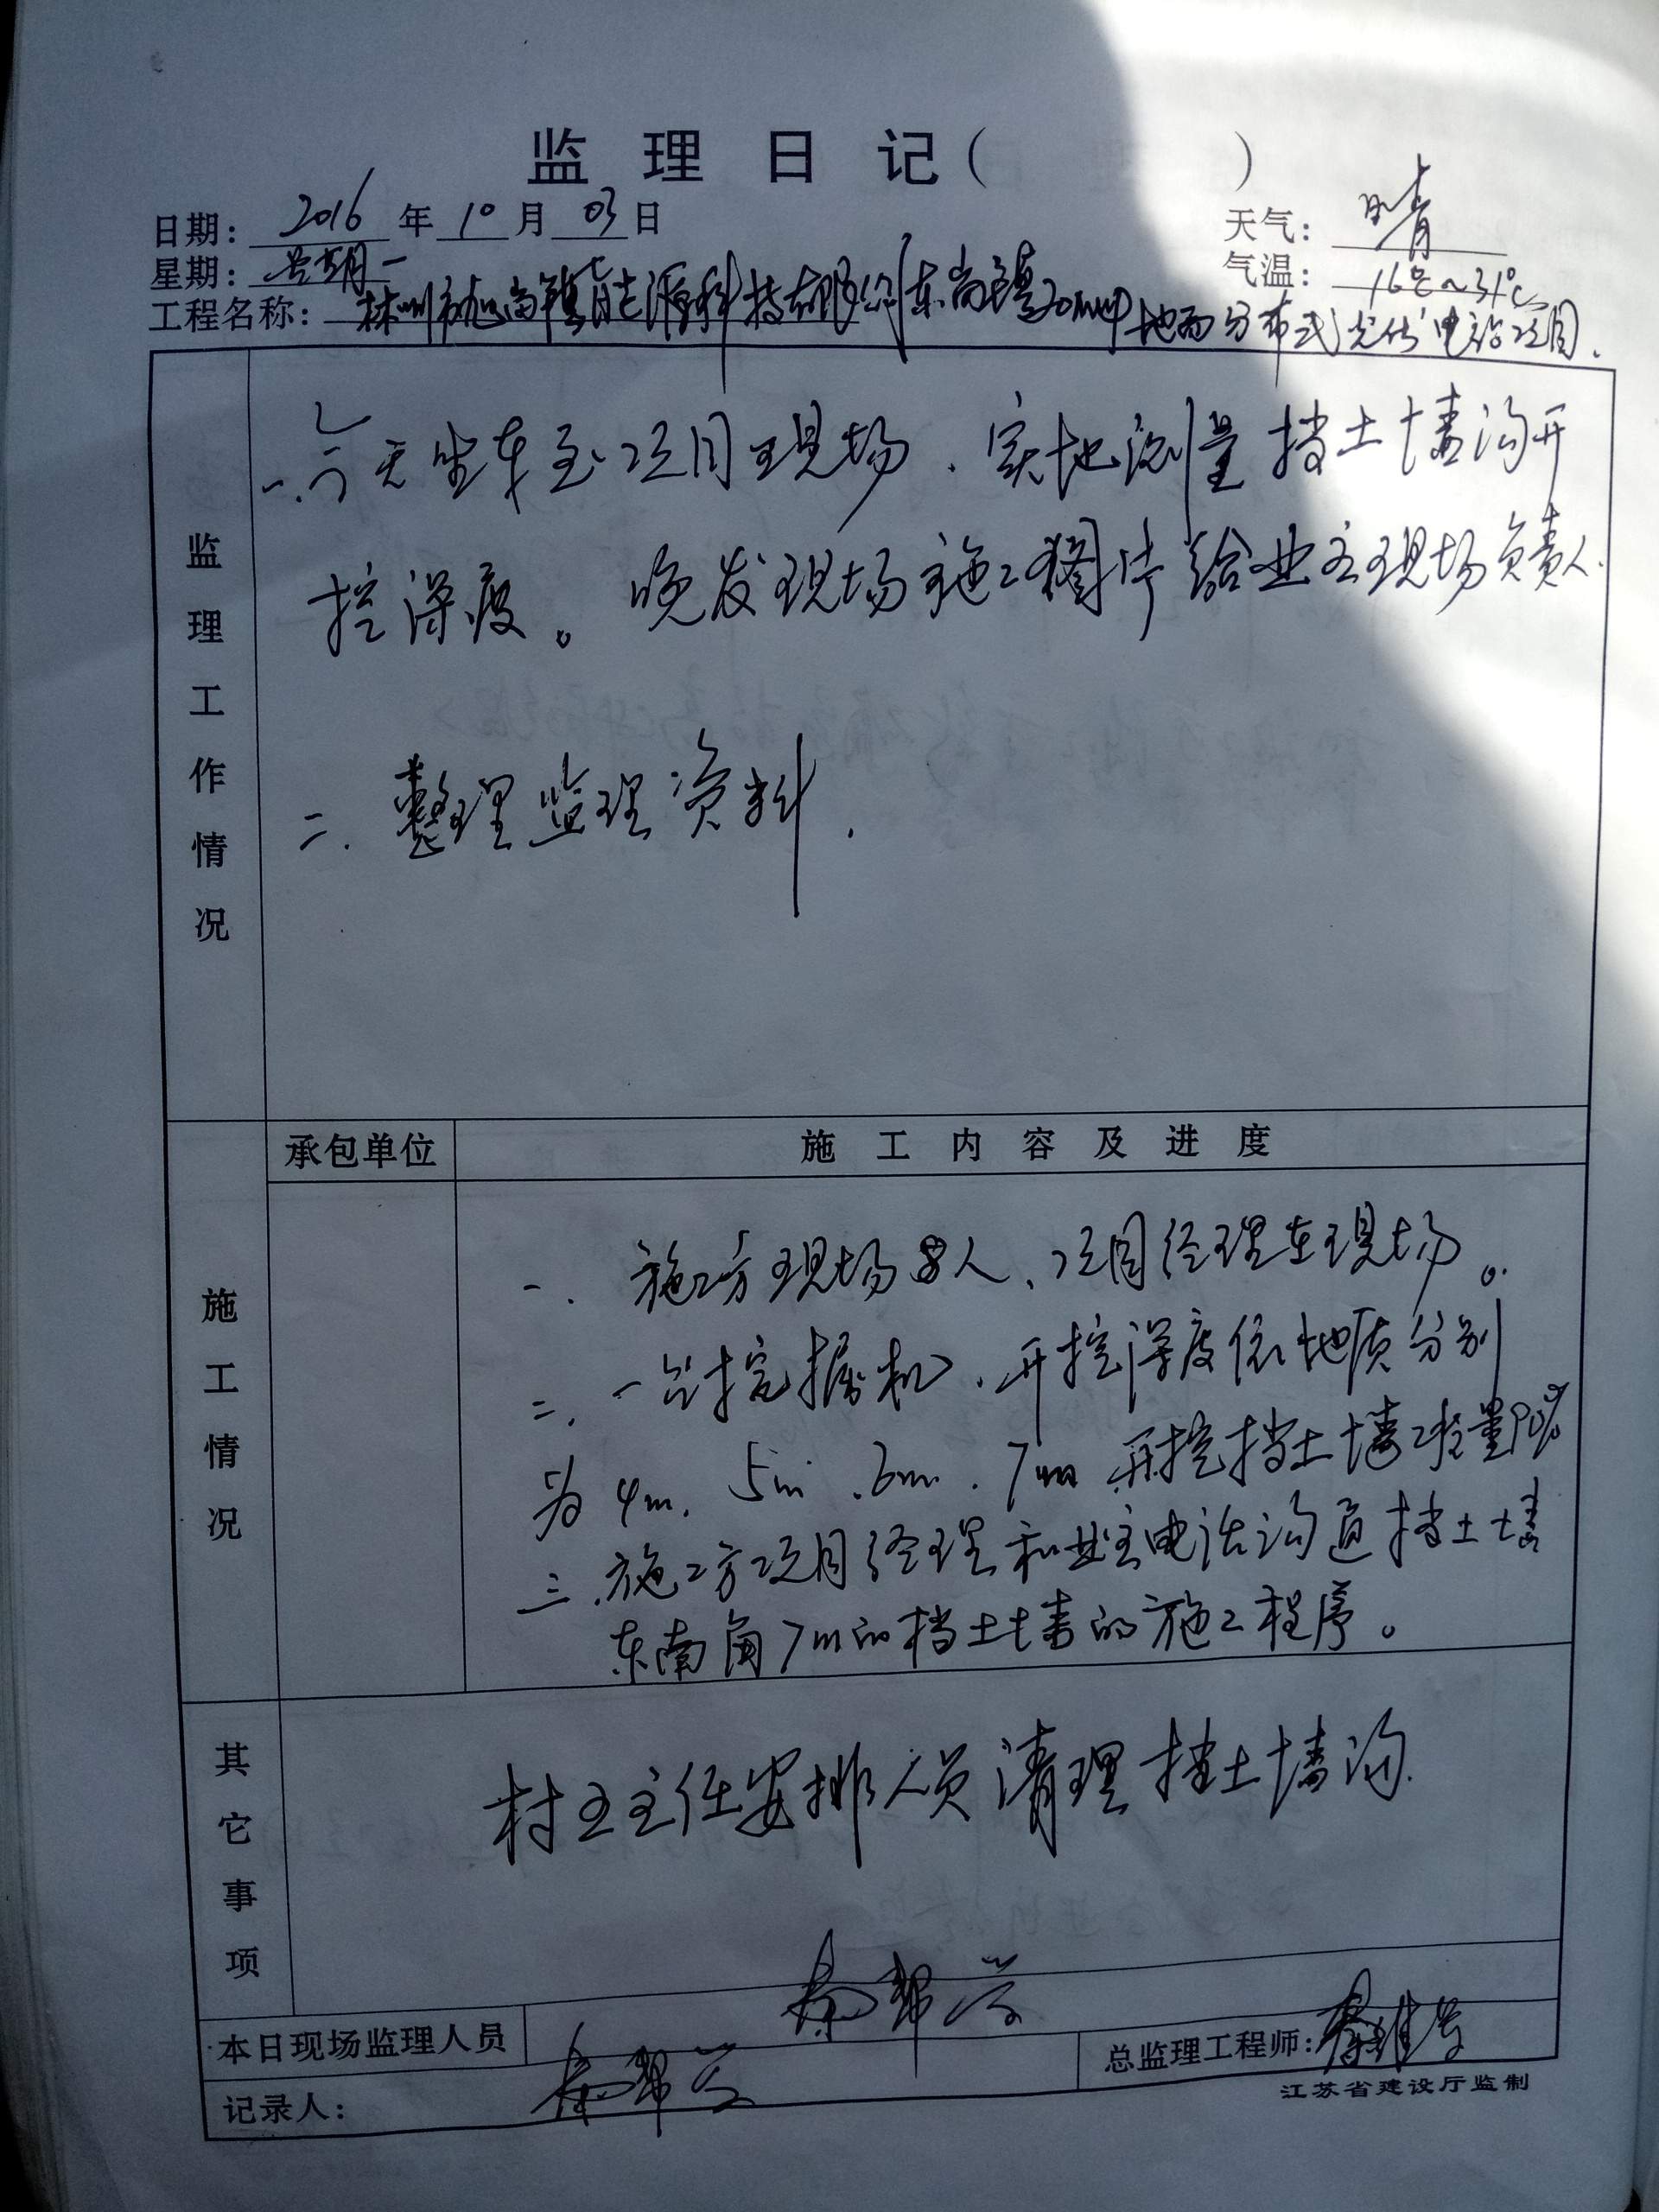 监理日记( )
日期: 2016 年 10 月 03 日 天气: 晴
星期: 星期一 气温: 16℃~31℃
工程名称: 林州市 新能源科技有限公司东岗镇20MWP地面分布式光伏电站项目.
监理工作情况
一.今天坐车至项目现场、实地测量挡土墙沟开
挖深度。晚发现场施工图片给业主现场负责人.
二.整理监理资料.
施工情况
承包单位 施工内容及进度
一. 施工方现场 人、项目经理在现场。
二.一台挖掘机、开挖深度依地质分别
为4m. 5m .6m .7m 开挖挡土墙工程量90%
三.施工方项目经理和业主电话沟通挡土墙
东南角7m的挡土墙的施工程序。
其它事项
村王主任安排人员清理挡土墙沟.
本日现场监理人员 秦邦
记录人: 秦邦 总监理工程师:
江苏省建设厅监制